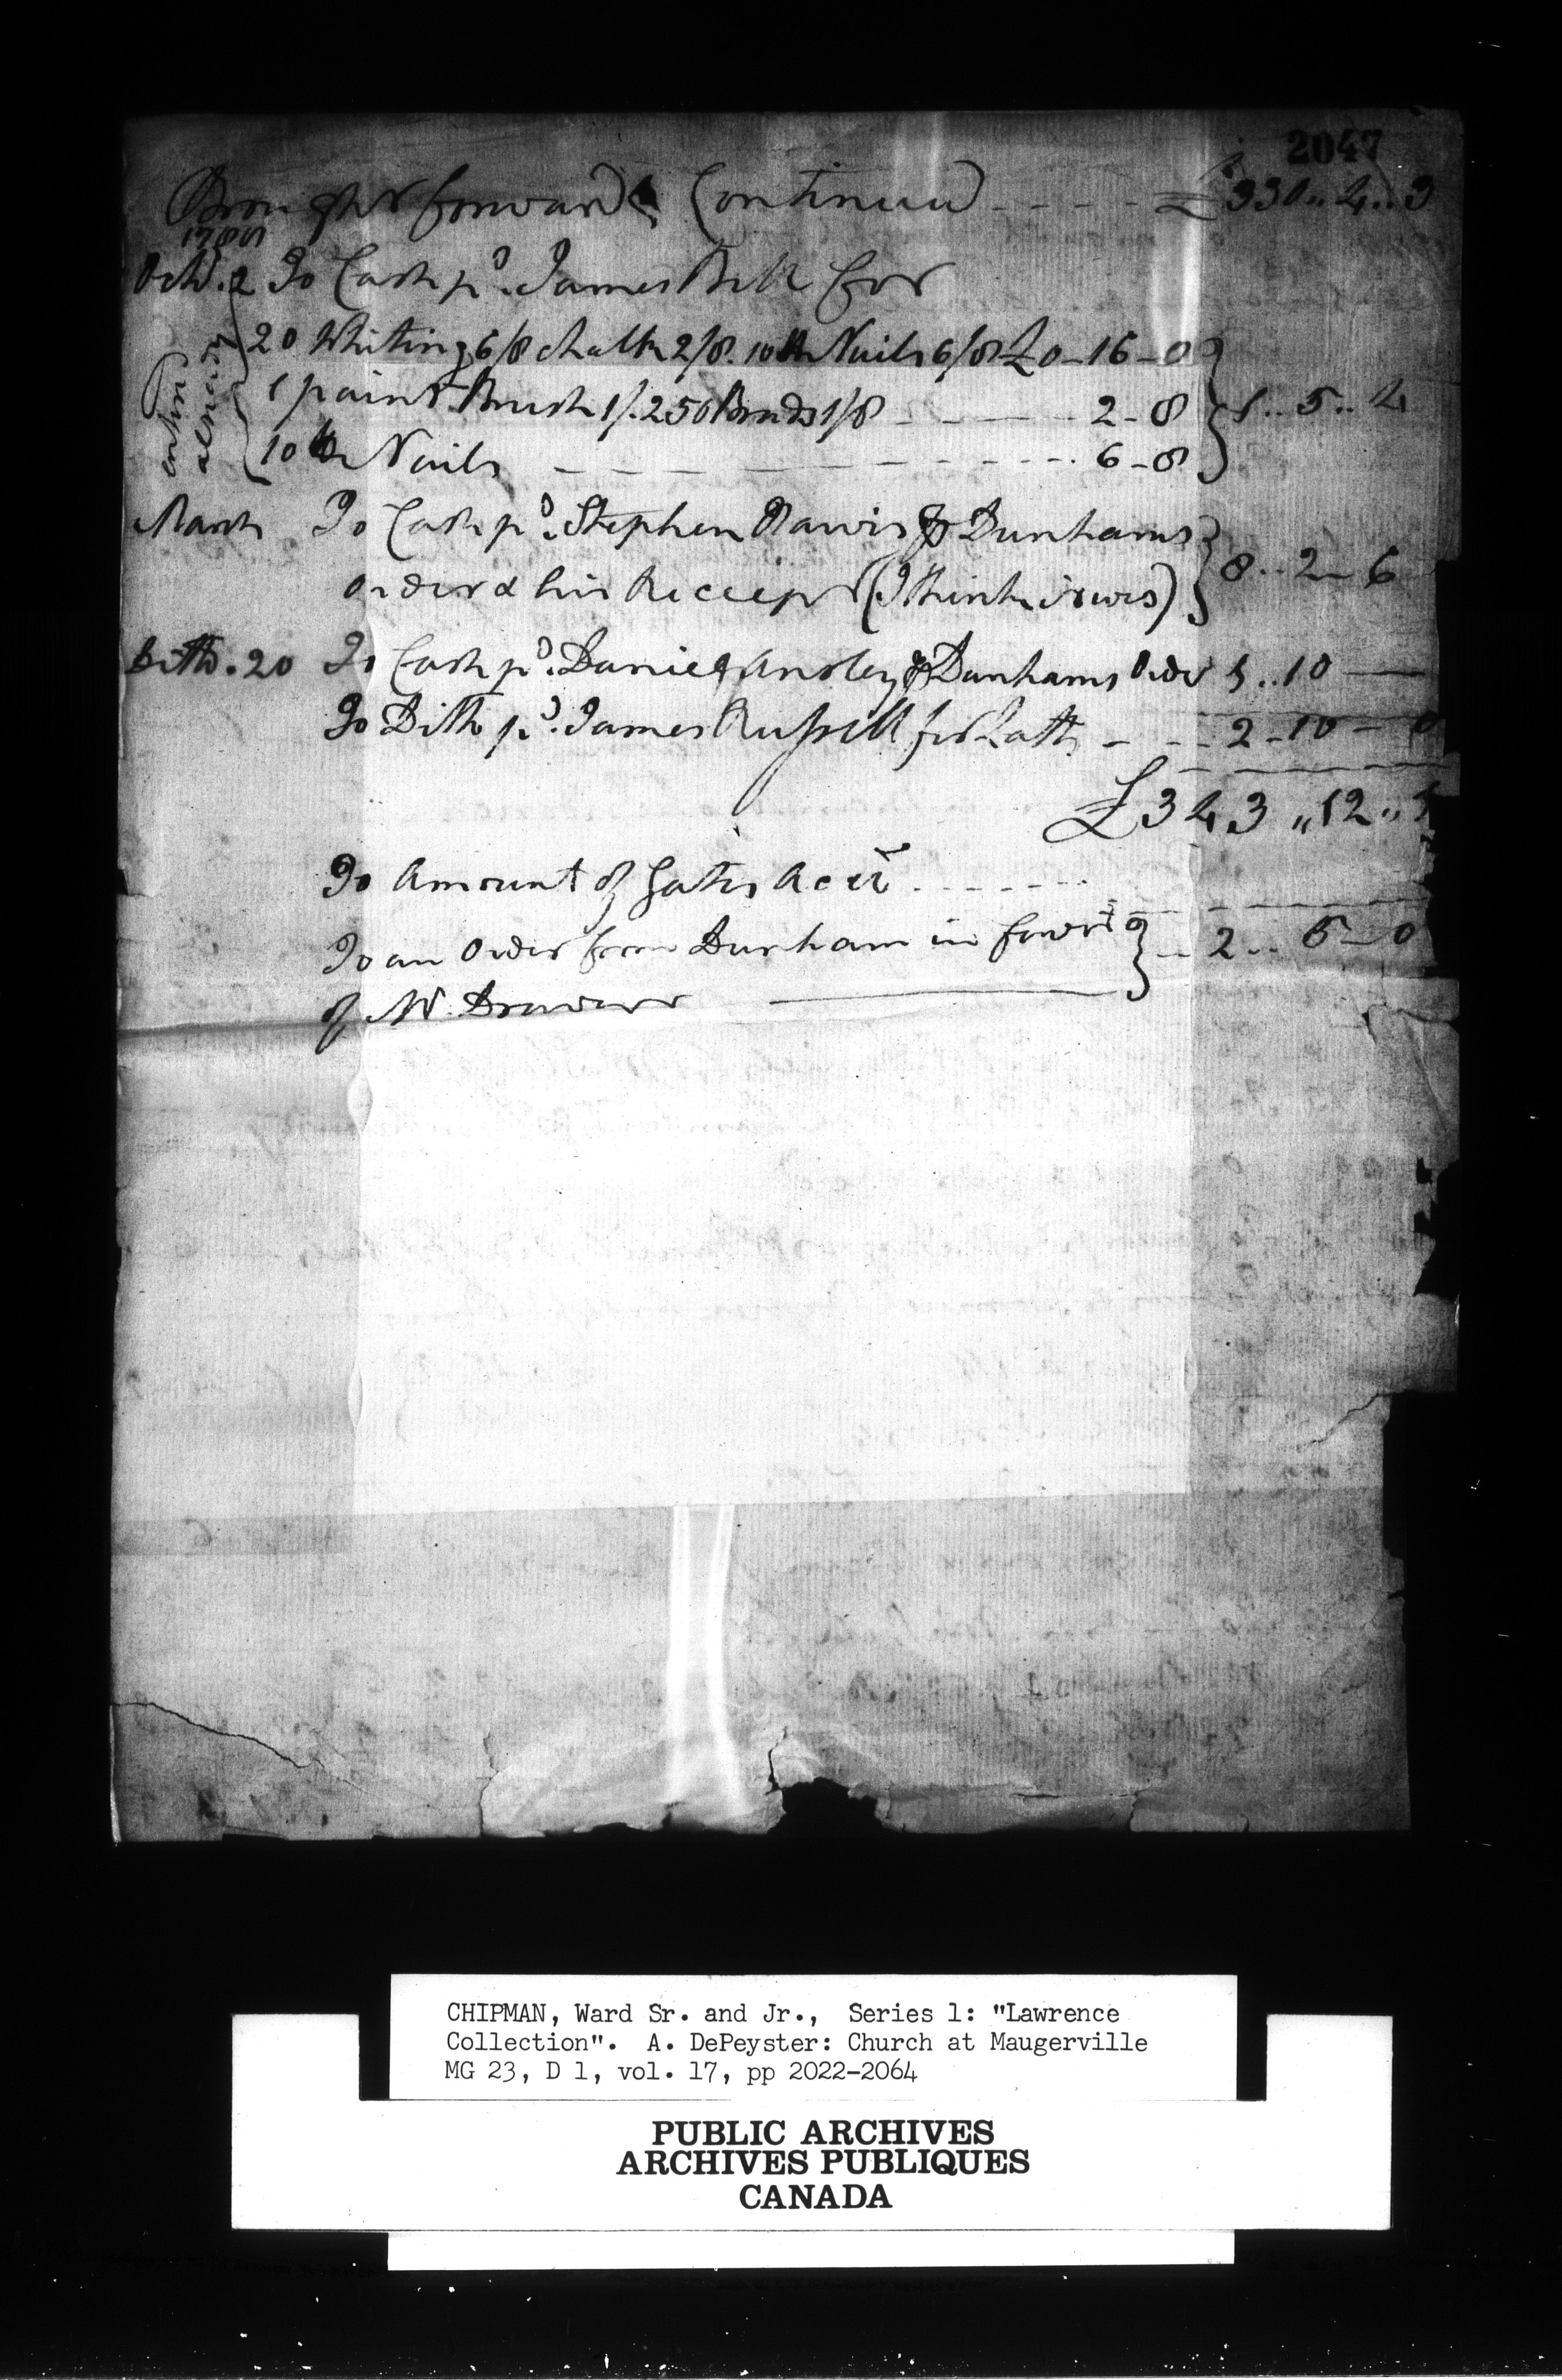 2047
Brought forward & Continued - - - - £330.. 4.. 3
1788
Octo. 2 To Cash pd. James Bell for
20 Whiting 6/8 Chalk 2/8. 10 lb Nails 6/8 £0-16-0
1 paint Brush 1/. 250 Brads 1/8 - - - 2-8 } 1.. 5.. 4
10 lb Nails - - - - - - 6-8
entered already
March To Cash pd. Stephen Davis Dunhams
order & his Receipt (I think it was) } 8.. 2- 6
Ditto. 20 To Cash pd. Daniel Ansley Dunhams Order 5.. 10 —
To Ditto pd. James Russell for Lath - - - 2-10-0
£343 ,, 12 ,,
To Amount of Gates Acct. - - - - - -
To an Order from Dunham in favor } - - 2.. 5-0
of W.
CHIPMAN, Ward Sr. and Jr., Series 1: "Lawrence
Collection". A. DePeyster: Church at Maugerville
MG 23, D 1, vol. 17, pp 2022-2064
PUBLIC ARCHIVES
ARCHIVES PUBLIQUES
CANADA